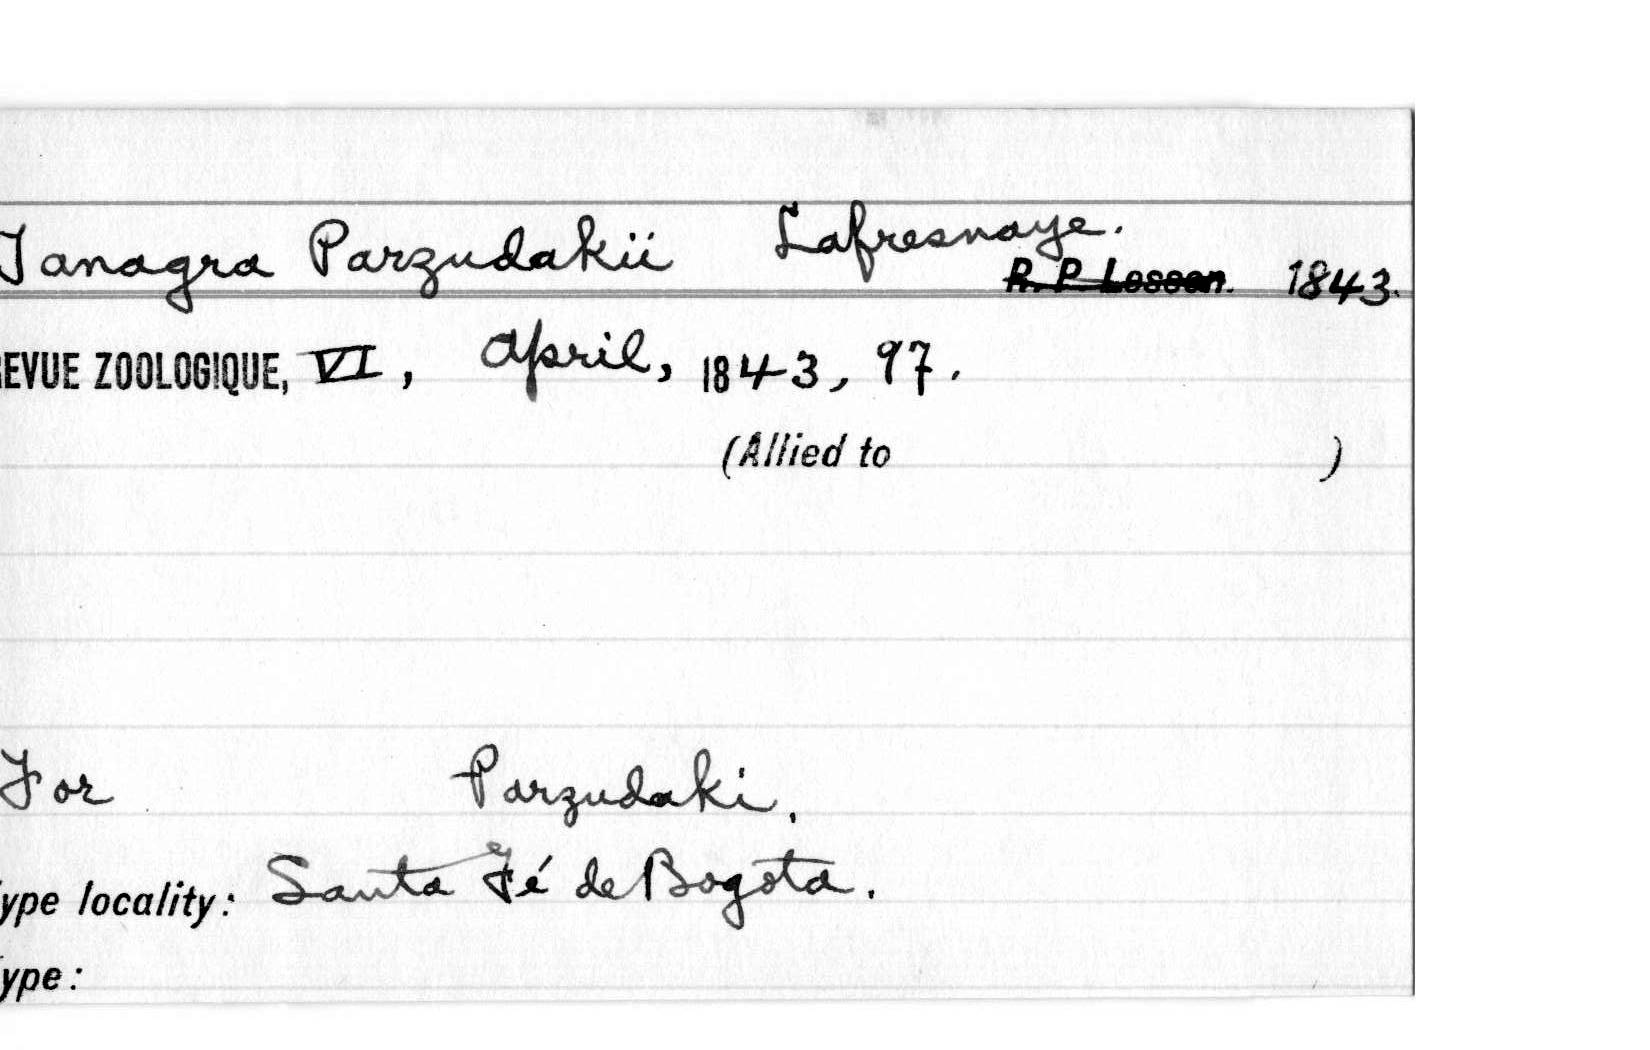 Tanagra Parzudakii Lafresnaye.
R. P. Lesson. 1843.
REVUE ZOOLOGIQUE, VI, April, 1843, 97.
(Allied to )
For Parzudaki.
ype locality: Santa Fé de Bogota.
ype: